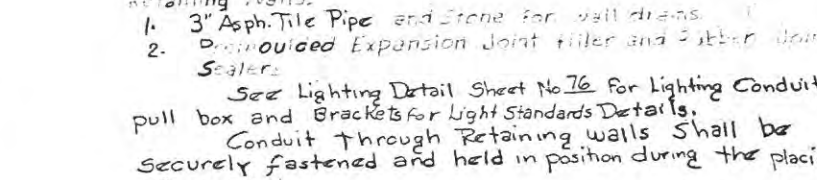 Retaining Walls.
1. 3" Asph. Tile Pipe and Stone for wall drains.
2. Premoulded Expansion Joint Filler and Rubber Joint
Sealer.
See Lighting Detail Sheet No 76 for Lighting Conduit
pull box and Brackets for Light Standards Details.
Conduit Through Retaining walls Shall be
Securely fastened and held in position during the placi